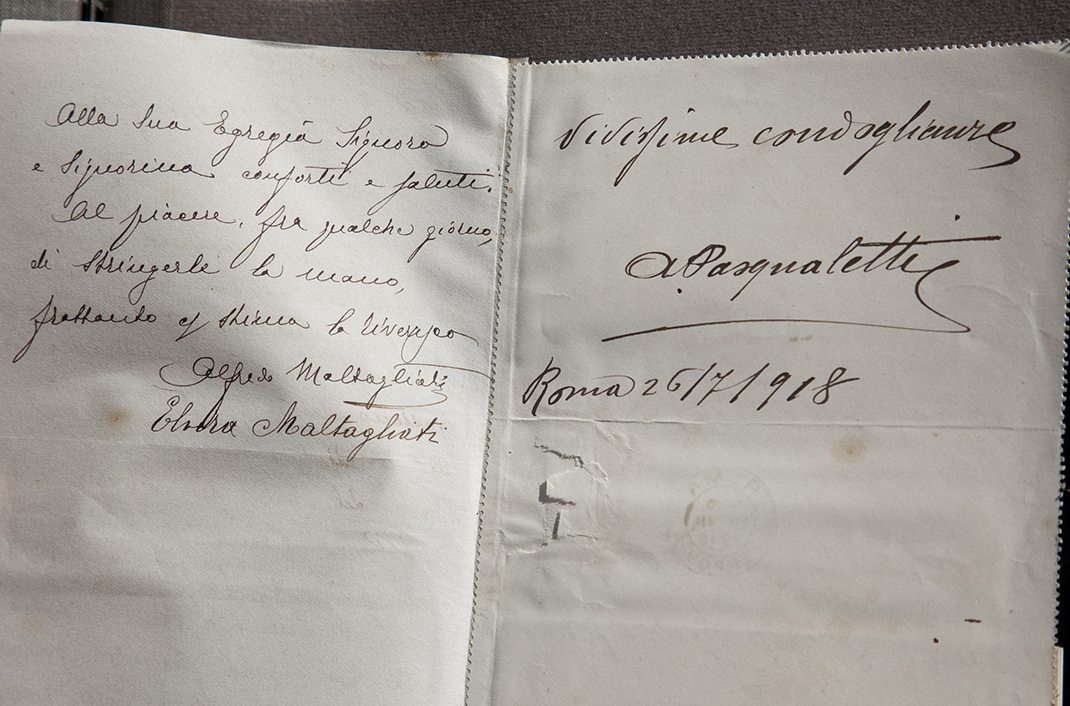 Alla Sua Egregia Signora
e Signorina conforti e saluti.
Al piacere, fra qualche giorno,
di stringerle la mano,
frattanto con stima la riverisco
Alfredo Maltagliati
Elvira Maltagliati
Vivissime condoglianze
A. Pasqualetti
Roma 26/7/918